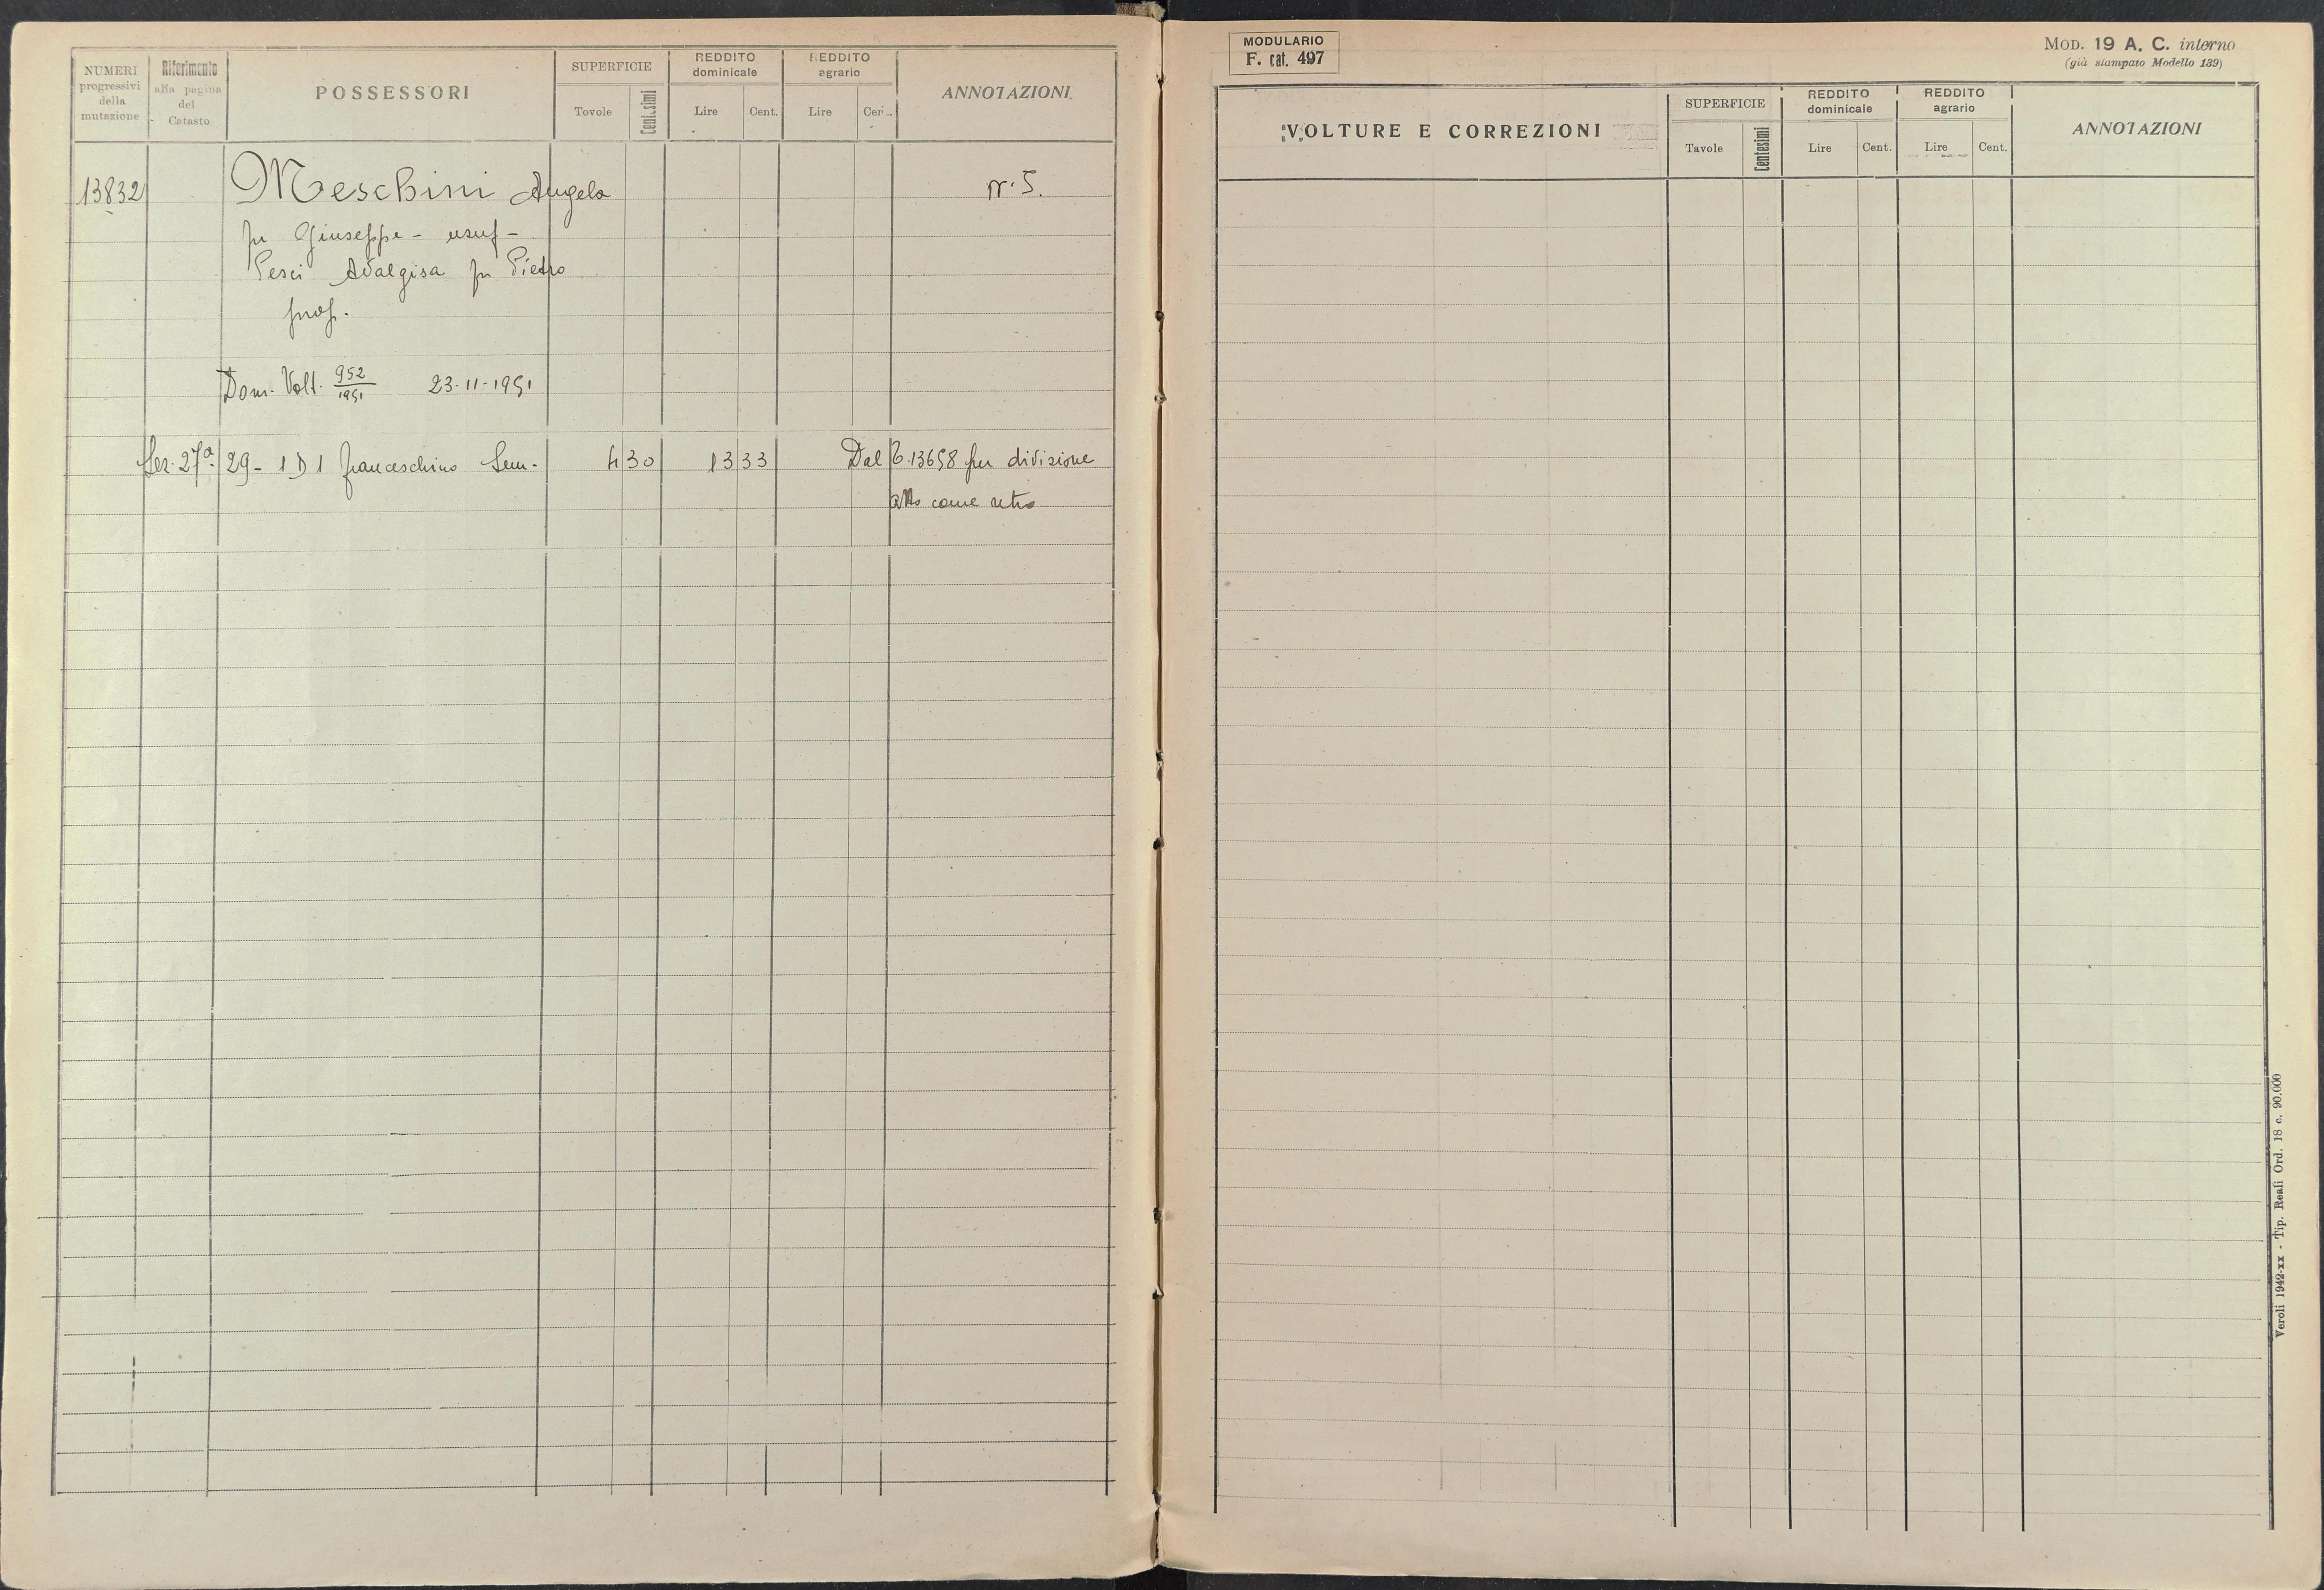 NUMERI progressivi della mutazione
Riferimento alla pagina del Catasto
POSSESSORI
SUPERFICIE
Tavole
Centesimi
REDDITO dominicale
Lire
Cent.
REDDITO agrario
Lire
Cent.
ANNOTAZIONI
13832
Meschini Angela
nr. 5.
fu Giuseppe - usuf -
Pesci Adalgisa fu Pietro
prop.
Dom. Volt. 952/1951 23-11-1951
Sez. 27ª 29 - 1 D 1 franceschino Sem. 4 30 13 33 Dal P. 13658 per divisione
atto come retro
MODULARIO
F. cat. 497
MOD. 19 A. C. interno
(già stampato Modello 139)
VOLTURE E CORREZIONI
SUPERFICIE
Tavole
Centesimi
REDDITO dominicale
Lire
Cent.
REDDITO agrario
Lire
Cent.
ANNOTAZIONI
Veroli 1942-XX - Tip. Reali Ord. 18 c. 90.000